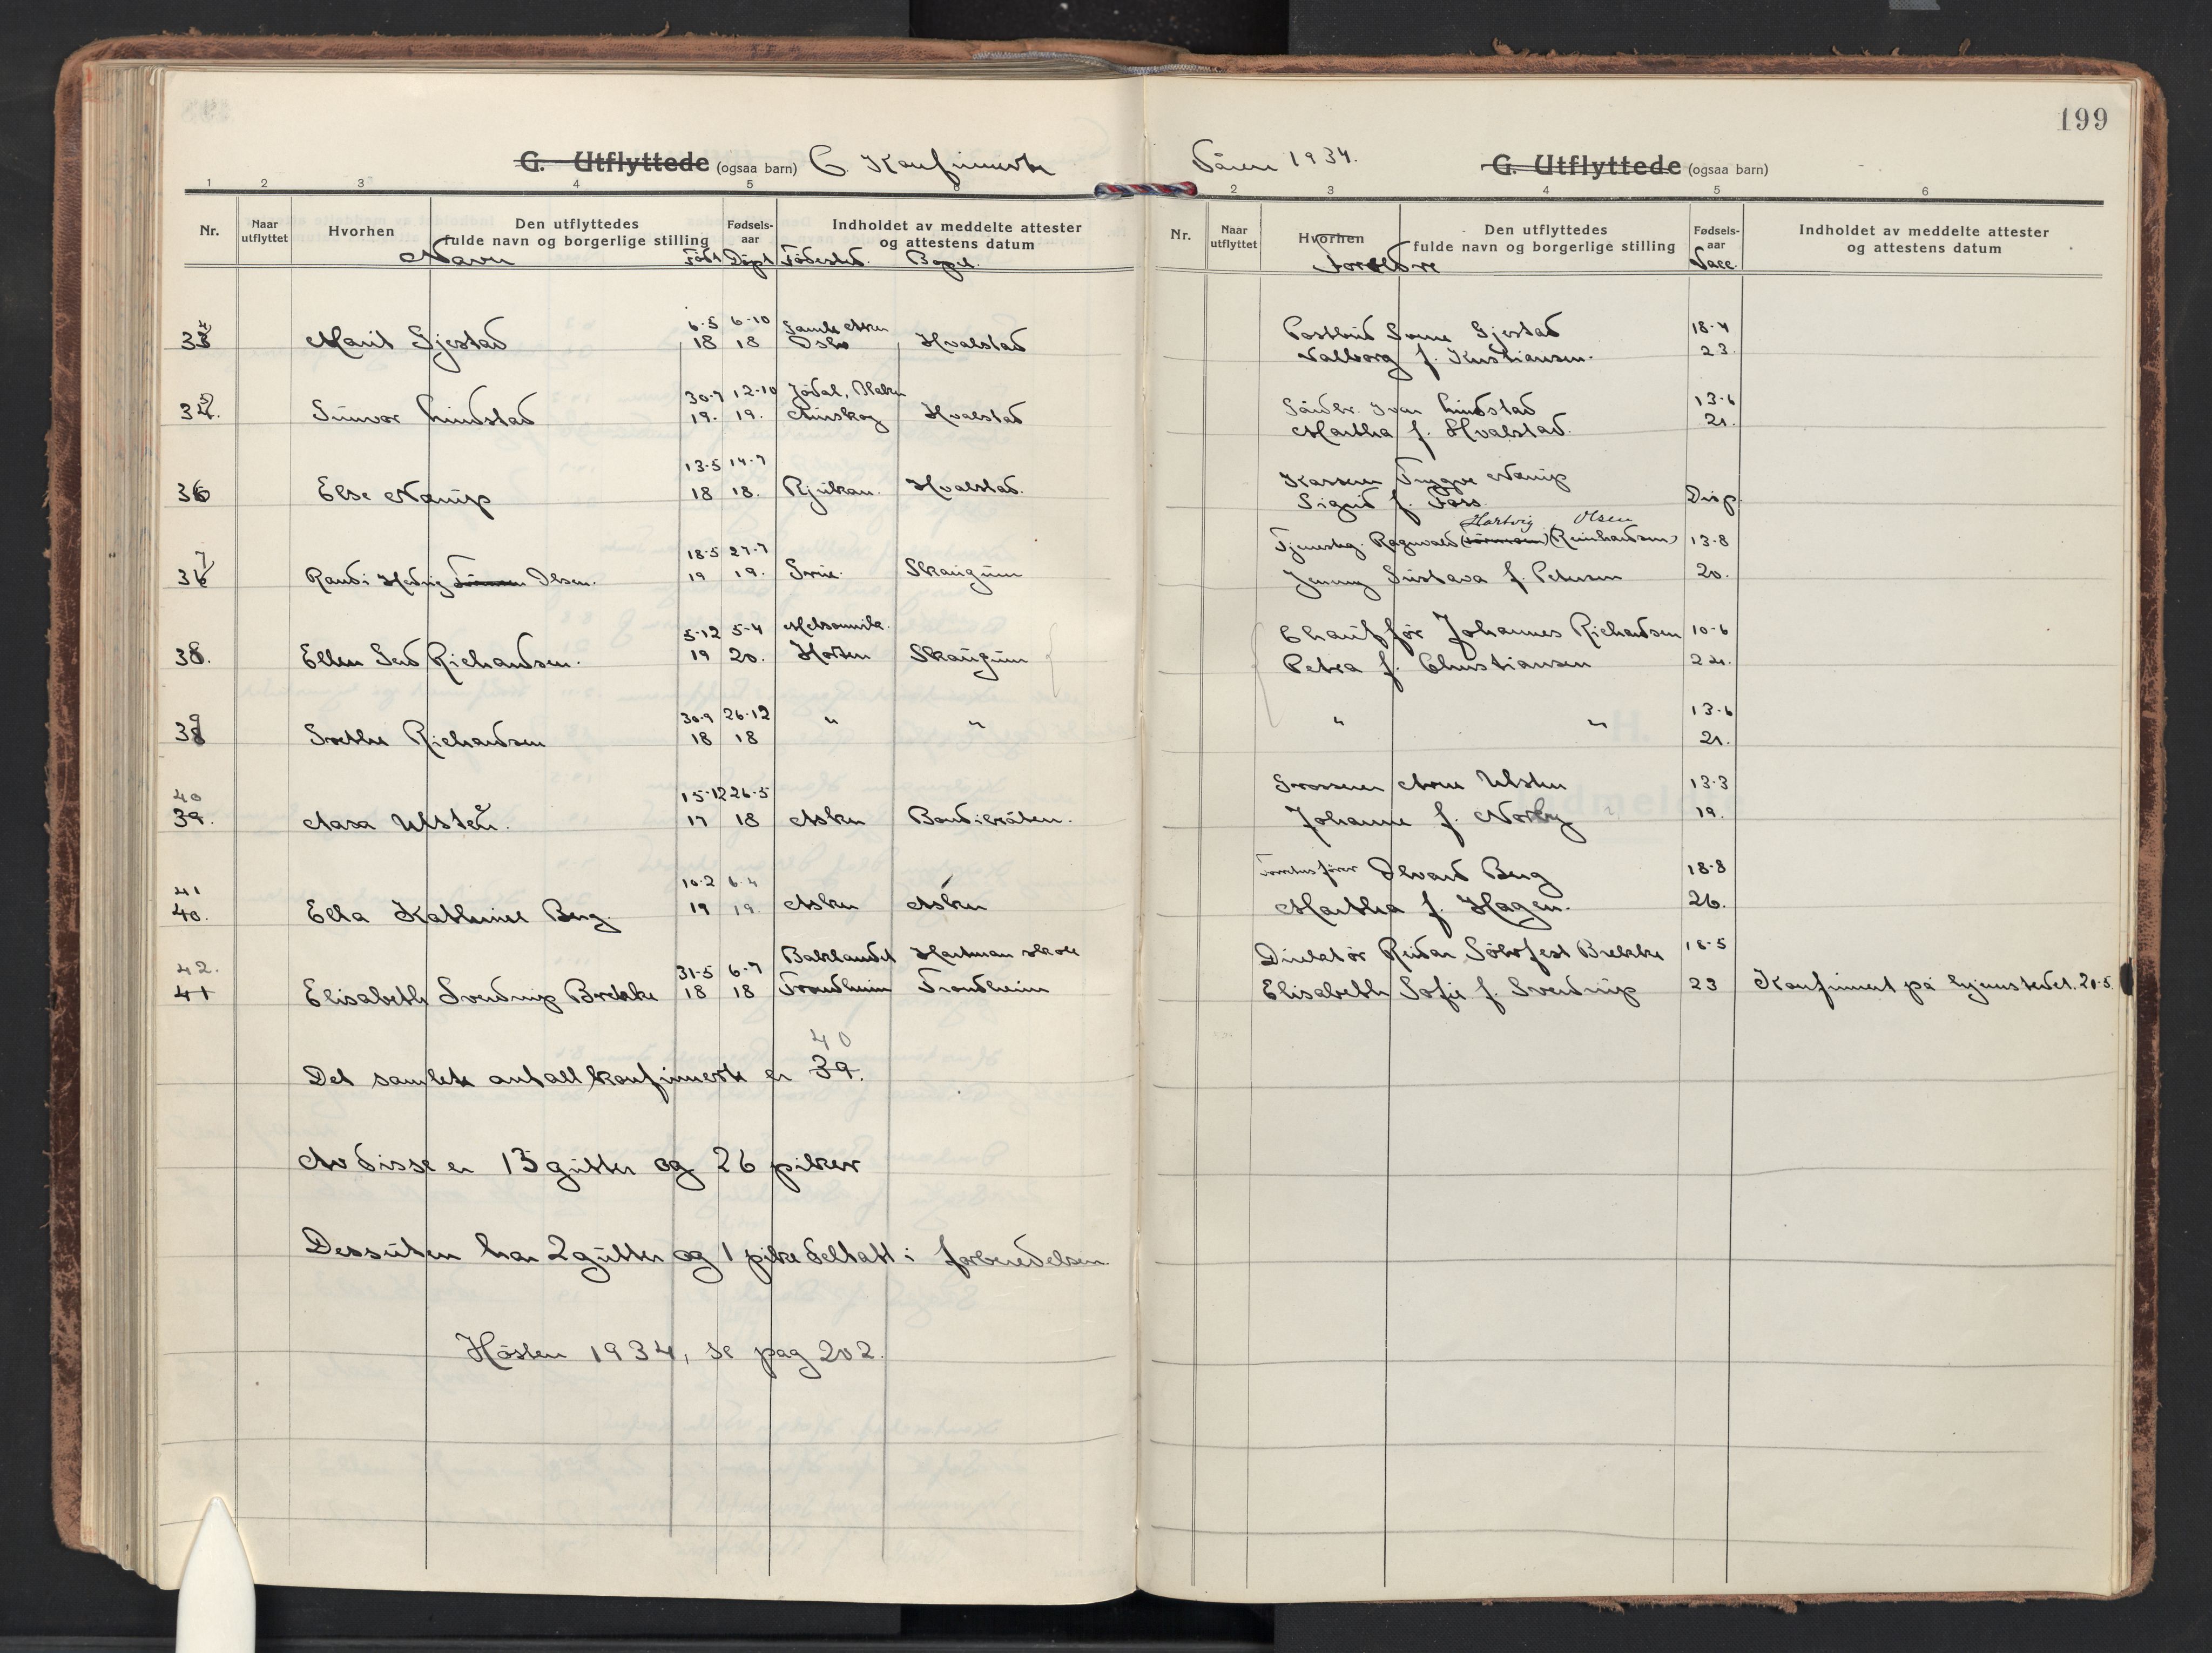 199
G. Utflyttede (ogsaa barn) C. Konfirmerte
Våren 1934.
G. Utflyttede (ogsaa barn)
1 2 3 4 5 6
2 3 4 5 6
Nr. Naar utflyttet Hvorhen Den utflyttedes fulde navn og borgerlige stilling Fødsels-aar Indholdet av meddelte attester og attestens datum
Navn Født Døpt Fødested. Bopel.
Nr. Naar utflyttet Hvorhen Den utflyttedes fulde navn og borgerlige stilling Fødsels-aar Indholdet av meddelte attester og attestens datum
Foreldre Vacc.
6-5 6-10 Gamle Aker
34 Marit Gjestad 18 18 Oslo Hvalstad
Postbud Gjestad 18-4
Valborg f. Kristiansen. 23.
30-7 12-10
35 Gunvor Lindstad 19. 19. Aurskog Hvalstad
Gårdbr. Ivar Lindstad 13-6
Martha f. Hvalstad. 21.
13-5 14-7
36 Else Narup 18 18. Rjukan. Hvalstad.
Kasserer Trygve Narup
Sigrid f. Foss. Disp.
18-5 27-7
37 Randi Hedvig Olsen. 19 19. Grue. Skaugum
Hartvig Olsen
Tjenestg. Ragnvald (Reinhardsen) 13-8
Jenny Gustava f. Petersen 20.
5-12 5-4
38. Ellen Gerd Richardsen. 19 20. Horten Skaugum
Chauffør Johannes Richardsen 10-6
Petra f. Christiansen 24.
30-9 26-12 " "
39 Grethe Richardsen 18 18
" " 13-6
21.
40 15-12 26-5
39. Aasa Ulsten. 17 18 Asker Bondibråten.
Grosserer Arne Ulsten 13-3
Johanne f. Norby 19.
41 10-2 6-4
40. Ella Kathrine Berg. 19 19. Asker Asker
Forretnfører Olvard Berg 18-8
Martha f. Hagen. 26.
42. 31-5 6-7 Baklandet Hartman skole
41 Elisabeth Sverdrup Brekke 18 18 Trondheim Trondheim
Direktør Reidar Sølvfest Brekke 18-5
Elisabeth Sofie f. Sverdrup 23 Konfirmert på hjemstedet. 21-5.
40
Det samlete antall konfirmerte er 39.
Av disse er 13 gutter og 26 piker
Dessuten har 2 gutter og 1 pike deltatt i forberedelsen.
Høsten 1934, se pag 202.